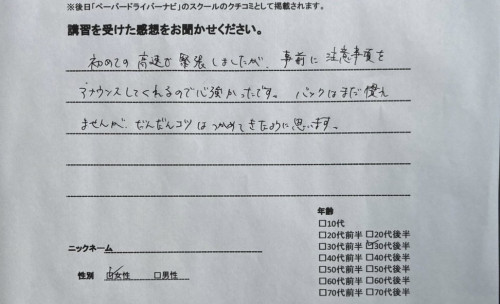 ※後日「ペーパードライバーナビ」のスクールのクチコミとして掲載されます。
講習を受けた感想をお聞かせください。
初めての高速で緊張しましたが、事前に注意事項を
アナウンスしてくれるので心強かったです。バックはまだ慣れ
ませんが、だんだんコツはつかめてきたように思います。
年齢
□10代
□20代前半 □20代後半
□30代前半 ☑30代後半
ニックネーム □40代前半 □40代後半
□50代前半 □50代後半
性別 ☑女性 □男性 □60代前半 □60代後半
□70代前半 □70代後半